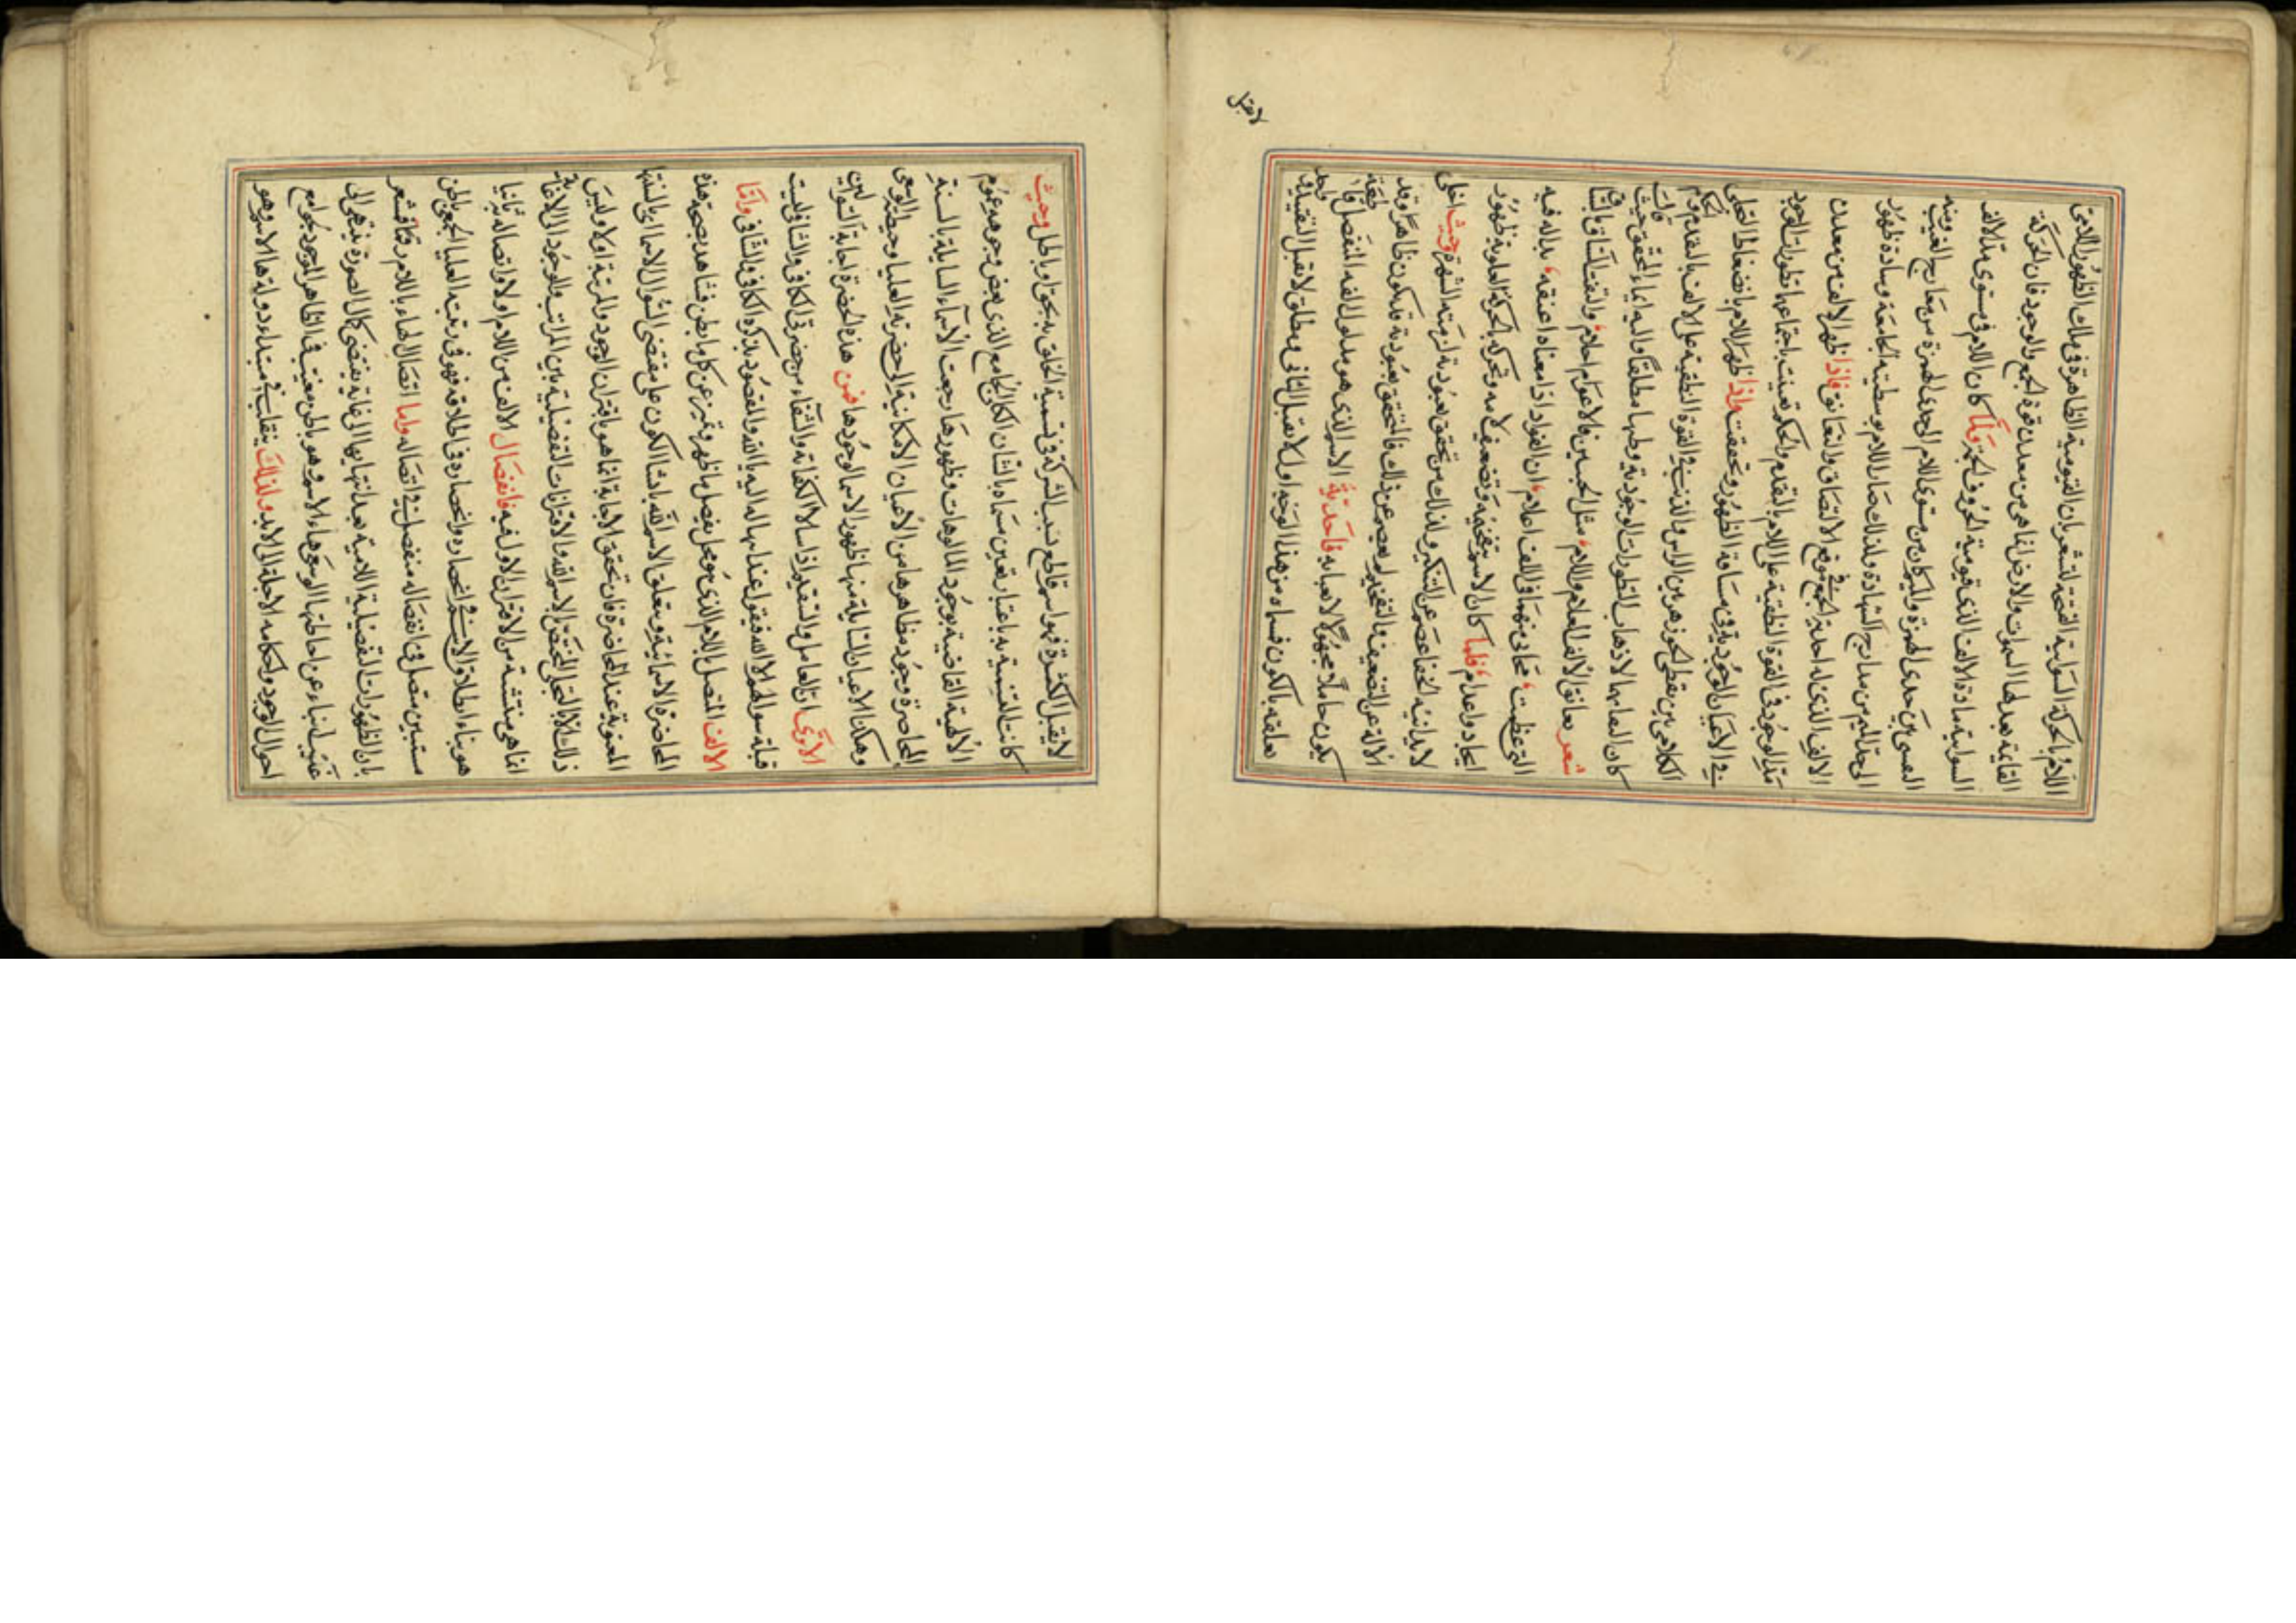 اللام بالحركة السوائية الفتحية لتشعر بان القيومية الظاهرة في ملك الظهور اللامي
القائمة بعدلها السموات والارض انما هي من معدن قوة الجمع والوجود فان الحركة
السوائية مادة الالف الذي قيومية الحروف الجمة ولما كان اللام في مستوى مد الالف
النفسي بين حدى الهمزة والميم كان من مستوى اللام الى حد الهمزة من معارج الغيب ومنه
الى حد الميم من مدارج الشهادة ولذلك صار اللام بوسطيته الجامعة وسادة ظهور
الالف الذي له احدية الجمع في موقع الالتصاق والتعانق فاذا ظهر الالف من معدن
مد الوجود في القوة النطقية على اللام بالتقدم والحكم تعينت باجتماعهما تطورات الوجود
في الاعيان الوجودية في مسافة الظهور وتحققت واذا ظهر اللام بانضغاط التجلى
الكلامى بين نقطتي الجوزهر بين الراس والذنب في القوة النطقية على الالف بالتقدم والحكم
كان المعا بهما الاذهاب التطورات الوجودية وطيها مطلقا واليه ايماء المحقق حيث قال
شعر تعانق الالف العلام واللام مثل الحبيبين فالاعوام احلام والتفت الساق بالساق
التي عظمت فجاءني منهما في اللف اعلام ان الفواد اذا معناه اعنقه بدا له فيه
ايجاد واعدام فلما كان الاسم بتفخيمه وتضعيف لامه وتحركه بالحركة العلوية ظهور
لا يدانيه الخفا عصم عن التنكير ولذلك من تحقق بعبوديته لزمته الشهرة وحيث اخلى
الآلة عن التضعيف والتفخيم لم يعصم عن ذلك فالمتحقق بعبوديته قد يكون ظاهرا وقد
يكون خاملا مجهولا لا يعبا به فاحدية الاسم الذي هو مدلول الفه المتصل فاء حقيقة
تعلقه بالكون فسماه من هذا الوجه اول لا يقبل الثاني ومطلق لا يقبل التقييد وواحد
لا يقبل
لا يقبل الكثرة فهو اسم قاطع نسب الشركة في تسمية الخلق به بحق او باطل وحيث
كانت التسمية به باعتبار تعين سماه بالشان الكلي الجامع الذي بعض وجوهه عموم
الالهية القاضية بوجود المالوهات وظهورها رجعت الاسماء السائلة بالسنة
الحاصرة وجود مظاهرها من الاعيان الامكانية الى حضرته العليا وحيطته الوسعى
وهكذا الاعيان القابلة منها ظهور الاسما لوجودها فمن هذه الحضرة اجابة السوالين
الاترى ان العامل والسقيم اذا سالا الكفاية والشفاء من حضرتي الكافي والشافي فليست
قبلة سوالهم الا الله فيقولا عند ابتهالهما اليه يا الله والمقصود بذكره الكافي والشافي واما
الالف المتصل باللام الذي هو محل تفصيل ما ظهر وتميز عن كل ما بطن فشاهد بصحة هذه
الحاضرة الاسمائية ومتعلق الاسم الله باشا الكون على مقتضى السؤال الاسمائي بالسنتها
المعنوية عند المحاضرة فان تحقق الاجابة انما هو باقتران الوجود والمرتبة اولا وليس
ذلك الا بالتجلي المختص بالاسم الله والاقترانات التفصيلية بين المراتب والوجود الى لا غاية
انما هي منتشية من الاقتران الاول فيه فانفصال الالف من اللام اولا واتصاله به ثانيا
هو بناء اطلاق الاسم في انحصاره وانحصاره في اطلاقه فهو في رتبته العليا الجمعي باطن
مستبين متصل في انفصاله منفصل في اتصاله واما اتصال الهاء باللام رقما فمشعر
بان الظهورات التفصيلية اللامية بعد انتهائها الى غاية يقتضى كمال الصورة ينتهى الى
غيب انباء عن احاطتها الوسعى هاء الاسم وهو باطن مغيب في الظاهر الموجود بجوامع
احوال الوجود واحكامه الاجلة الى الابد ولذلك ينقلب في مبتداء دولة هاء الاسم وهو